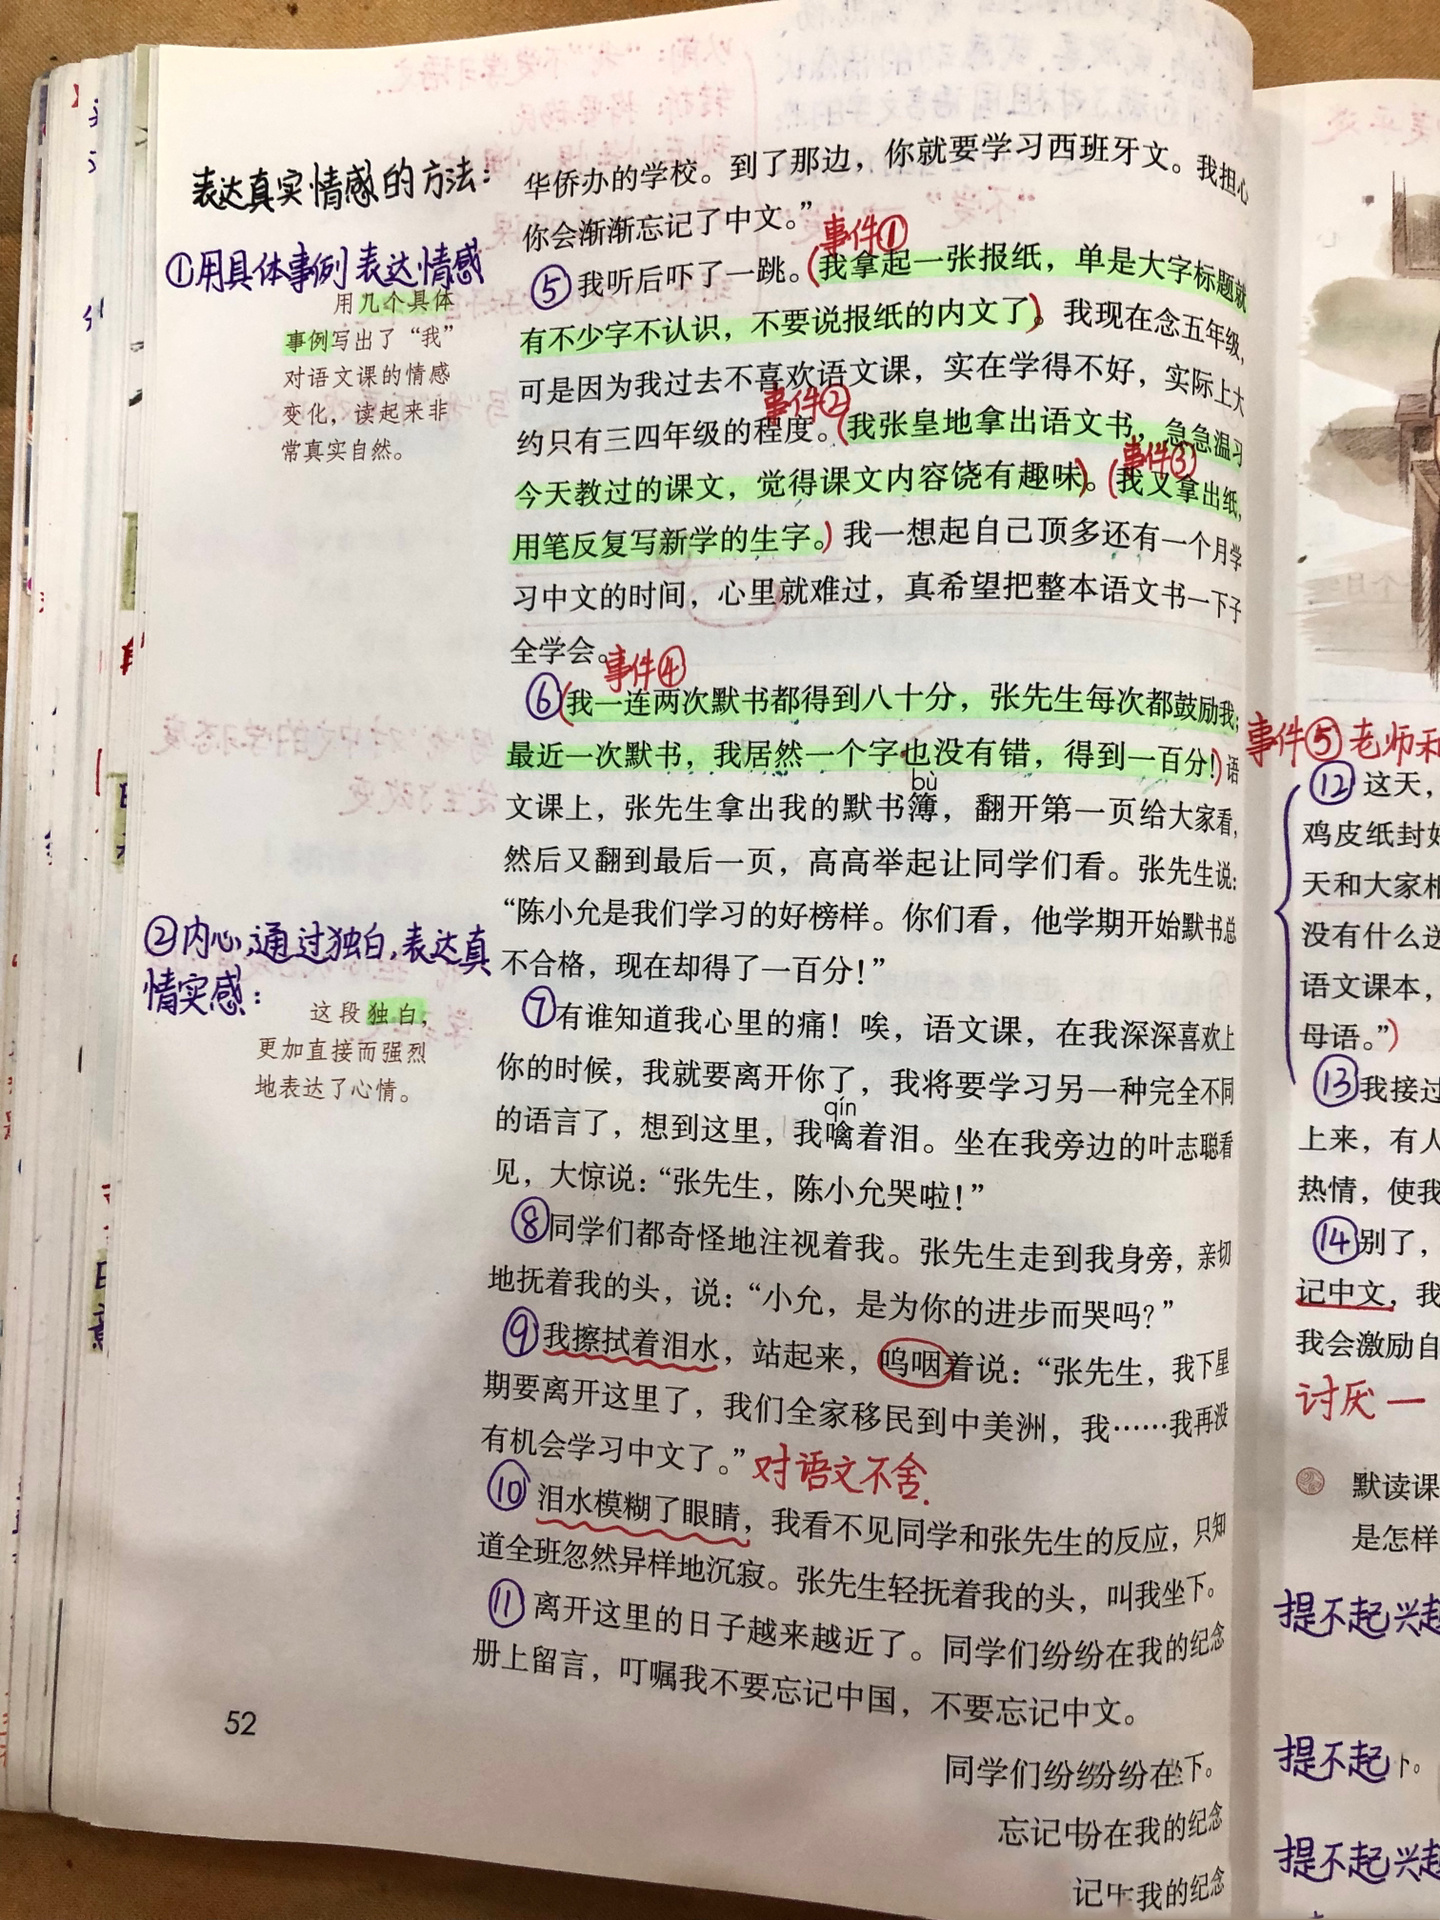 表达真实情感的方法：
①用具体事例表达情感
用几个具体
事例写出了“我”
对语文课的情感
变化，读起来非
常真实自然。
②内心，通过独白，表达真
情实感：
这段独白，
更加直接而强烈
地表达了心情。
华侨办的学校。到了那边，你就要学习西班牙文。我担心
你会渐渐忘记了中文。”
事件①
⑤我听后吓了一跳。(我拿起一张报纸，单是大字标题就
有不少字不认识，不要说报纸的内文了)。我现在念五年级，
可是因为我过去不喜欢语文课，实在学得不好，实际上大
事件②
约只有三四年级的程度。(我张皇地拿出语文书，急急温习
事件③
今天教过的课文，觉得课文内容饶有趣味)。(我又拿出纸，
用笔反复写新学的生字。)我一想起自己顶多还有一个月学
习中文的时间，心里就难过，真希望把整本语文书一下子
全学会。
事件④
⑥(我一连两次默书都得到八十分，张先生每次都鼓励我；
最近一次默书，我居然一个字也没有错，得到一百分！)语
bù
文课上，张先生拿出我的默书簿，翻开第一页给大家看，
然后又翻到最后一页，高高举起让同学们看。张先生说：
“陈小允是我们学习的好榜样。你们看，他学期开始默书总
不合格，现在却得了一百分！”
⑦有谁知道我心里的痛！唉，语文课，在我深深喜欢上
你的时候，我就要离开你了，我将要学习另一种完全不同
qín
的语言了，想到这里，我噙着泪。坐在我旁边的叶志聪看
见，大惊说：“张先生，陈小允哭啦！”
⑧同学们都奇怪地注视着我。张先生走到我身旁，亲切
地抚着我的头，说：“小允，是为你的进步而哭吗？”
⑨我擦拭着泪水，站起来，呜咽着说：“张先生，我下星
期要离开这里了，我们全家移民到中美洲，我……我再没
有机会学习中文了。”对语文不舍.
⑩泪水模糊了眼睛，我看不见同学和张先生的反应，只知
道全班忽然异样地沉寂。张先生轻抚着我的头，叫我坐下。
⑪离开这里的日子越来越近了。同学们纷纷在我的纪念
册上留言，叮嘱我不要忘记中国，不要忘记中文。
52
同学们纷纷纷在坐下。
忘记中分在我的纪念
记中我的纪念
事件⑤老师和
⑫这天，
鸡皮纸封好
天和大家相
没有什么送
语文课本，
母语。”)
⑬我接过
上来，有人
热情，使我
⑭别了，
记中文，我
我会激励自
讨厌一
默读课
是怎样
提不起兴趣
提不起下。
提不起兴趣